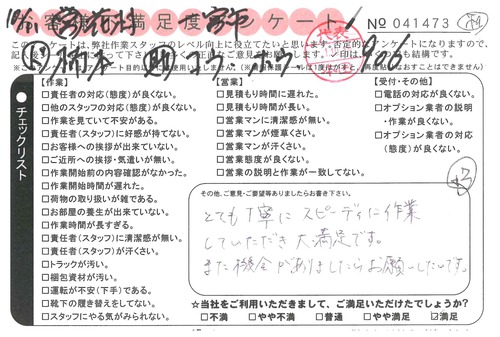 お客様満足度アンケート
№ 041473
このアンケートは、弊社作業スタッフのレベル向上に役立てたいと思います。否定的なアンケートになりますので、
チェックリスト
【作業】
□責任者の対応(態度)が良くない。
□他のスタッフの対応(態度)が良くない。
□作業を見ていて不安がある。
□責任者(スタッフ)に好感が持てない。
□お客様への挨拶が出来ていない。
□ご近所への挨拶・気遣いが無い。
□作業開始前の内容確認がなかった。
□作業開始時間が遅れた。
□荷物の取り扱いが雑である。
□お部屋の養生が出来ていない。
□作業時間が長すぎる。
□責任者(スタッフ)に清潔感が無い。
□責任者(スタッフ)が汗くさい。
□トラックが汚い。
□梱包資材が汚い。
□運転が不安(下手)である。
□靴下の履き替えをしてない。
□スタッフにやる気がみられない。
【営業】
□見積もり時間に遅れた。
□見積もり時間が長い。
□営業マンに清潔感が無い。
□営業マンが煙草くさい。
□営業マンが汗くさい。
□営業態度が良くない。
□営業の説明と作業が一致してない。
【受付・その他】
□電話の対応が良くない。
□オプション業者の説明
・作業が良くない。
□オプション業者の対応
(態度)が良くない。
その他、ご意見・ご要望等ありましたらお書き下さい。
とても丁寧にスピーディに作業
していただき大満足です。
また機会がありましたらお願いしたいです。
☆当社をご利用いただきまして、ご満足いただけたでしょうか?
□不満 □やや不満 □普通 □やや満足 ☑満足